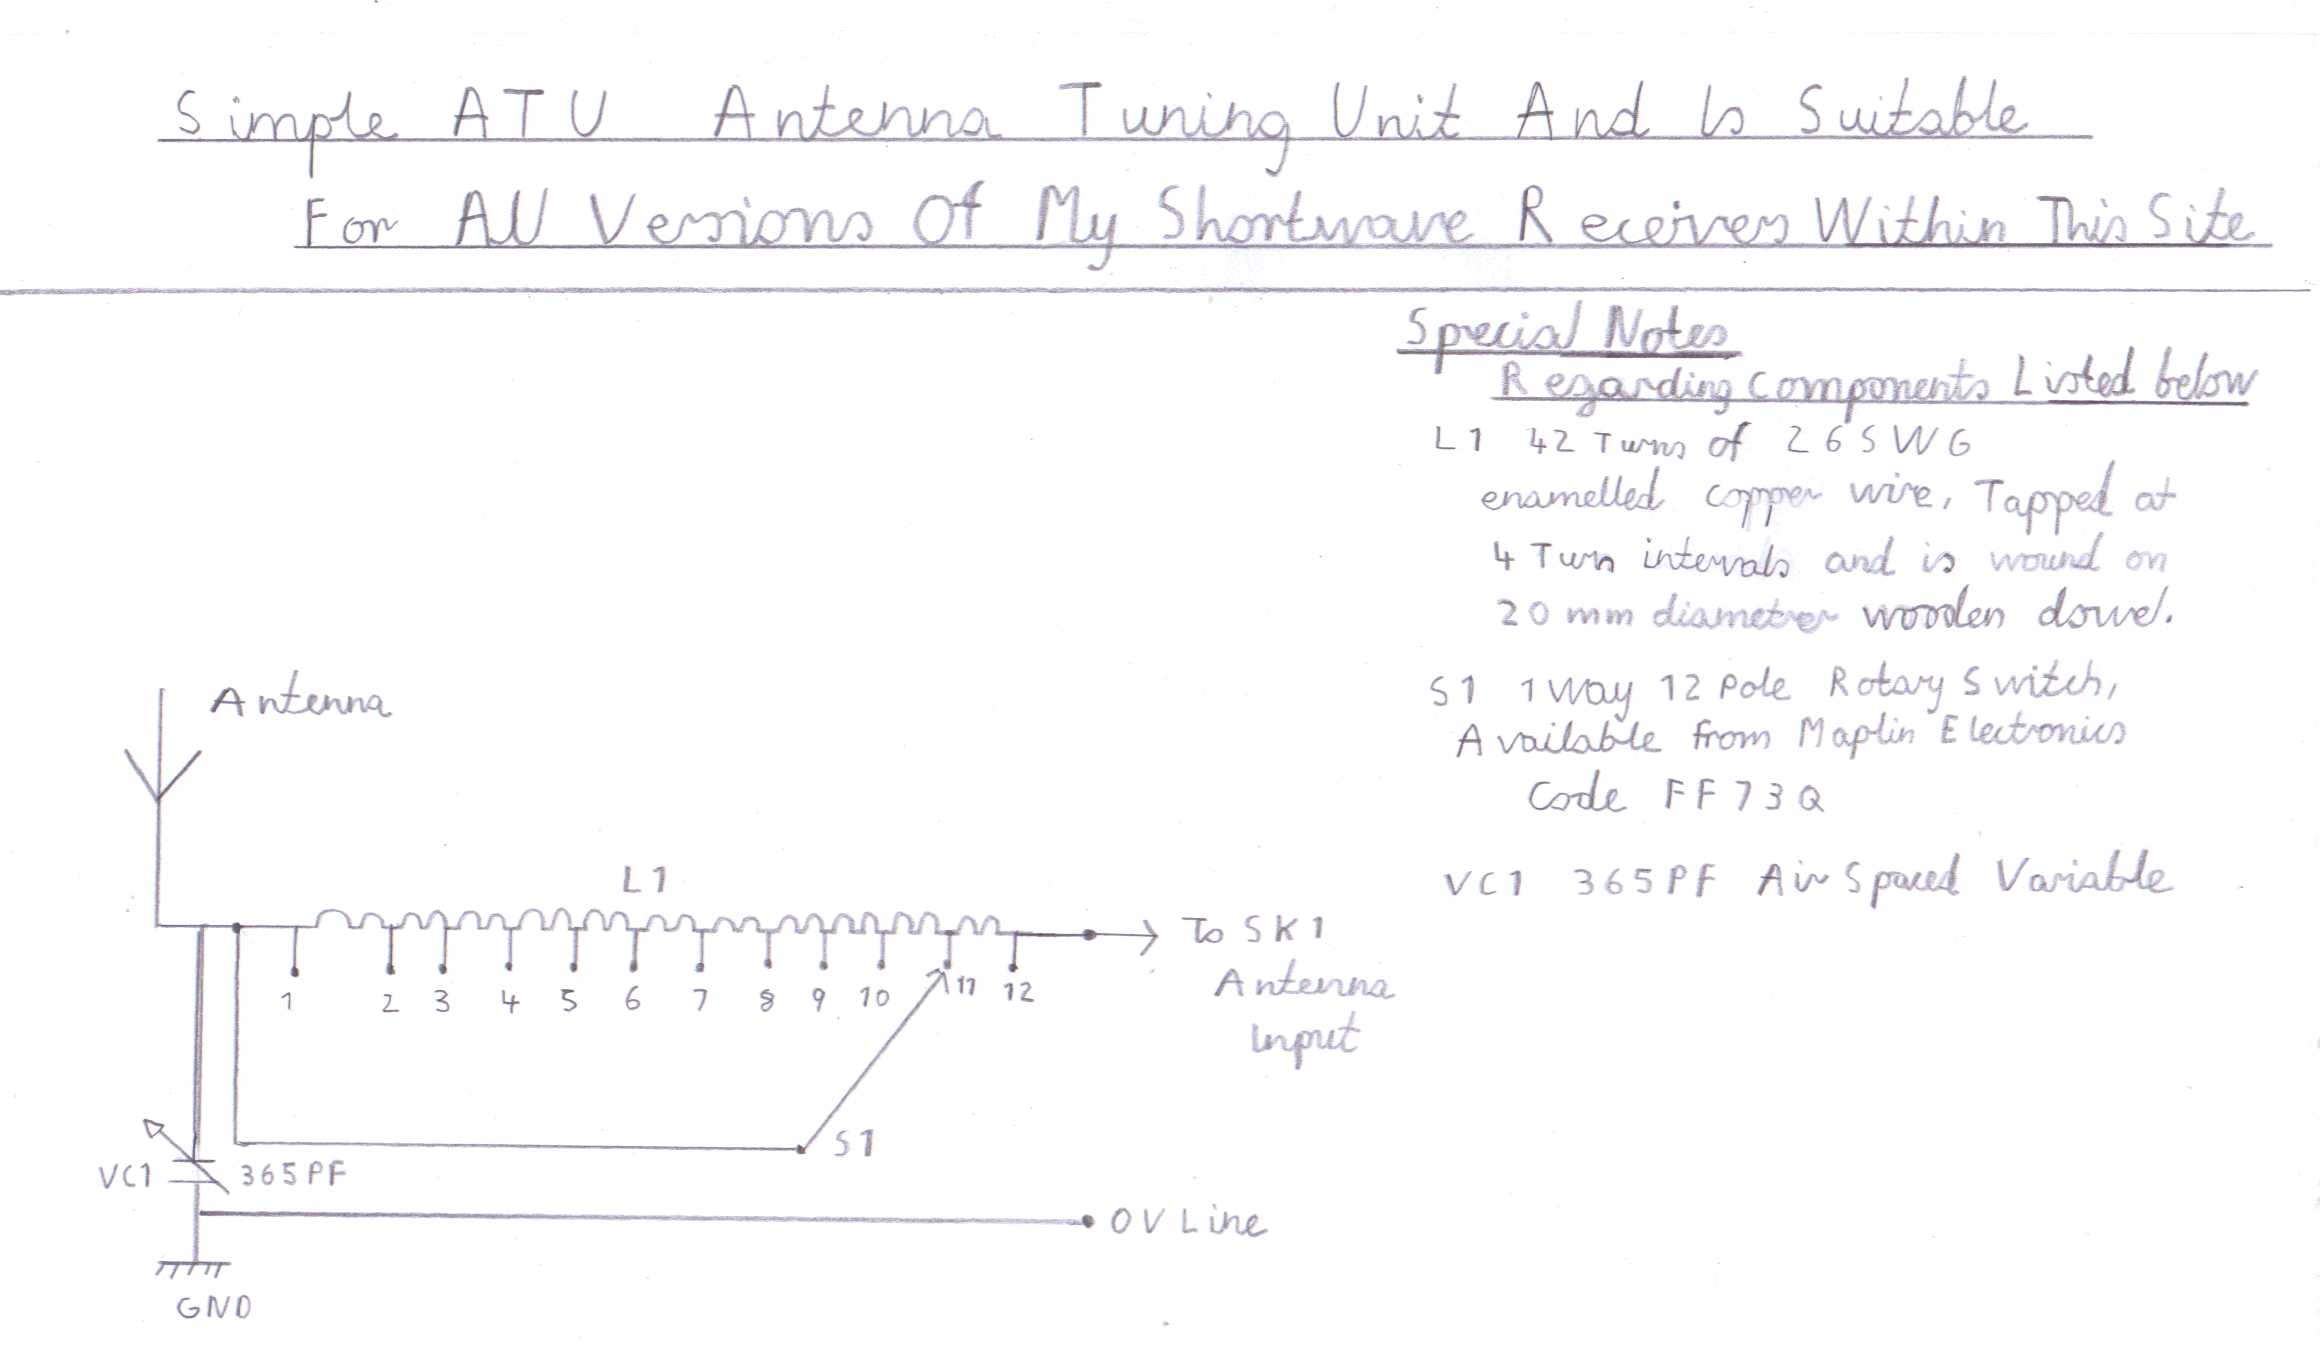 Simple ATU Antenna Tuning Unit And Is Suitable
For All Versions Of My Shortwave Receivers Within This Site
Special Notes
Regarding Components Listed below
L1 42 Turns of 26 SWG
enamelled copper wire, Tapped at
4 Turn intervals and is wound on
20 mm diameter wooden dowel.
S1 1 Way 12 Pole Rotary Switch,
Available from Maplin Electronics
Code FF73Q
VC1 365PF Air Spaced Variable
Antenna
L1
To SK1
Antenna
Input
1 2 3 4 5 6 7 8 9 10 11 12
S1
VC1 365PF
0V Line
GND